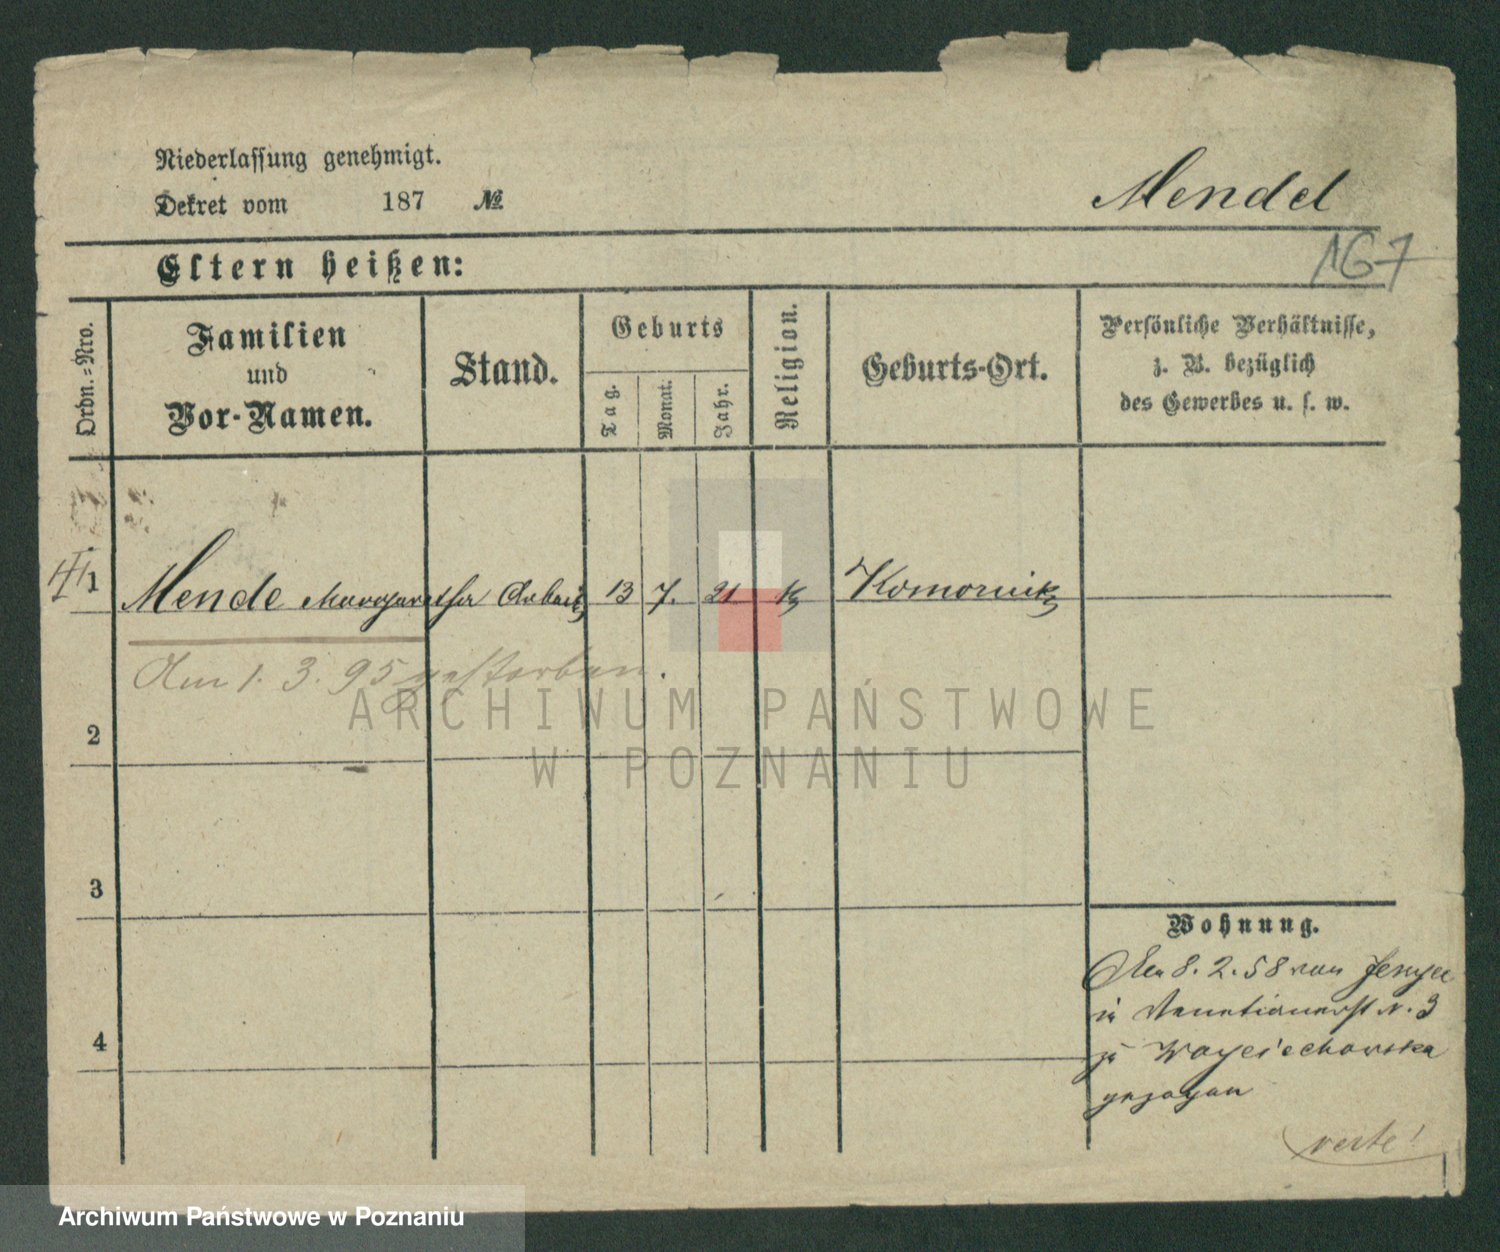 Niederlassung genehmigt.
Dekret vom 187 №
Mendel
167
Eltern heißen:
Ordn.-Nro.
Familien
und
Vor-Namen.
Stand.
Geburts
Tag.
Monat.
Jahr.
Religion.
Geburts-Ort.
Persönliche Verhältnisse,
z. B. bezüglich
des Gewerbes u. s. w.
1 Mende Margaretha Arbeit 13 7. 21 K Komornik
Am 1. 3. 95 gestorben.
2
3
4
Wohnung.
Den 8. 2. 58 von
in Venetianerst N. 3
zu Woyciechowska
gezogen
verte!
ARCHIWUM PAŃSTWOWE
W POZNANIU
Archiwum Państwowe w Poznaniu